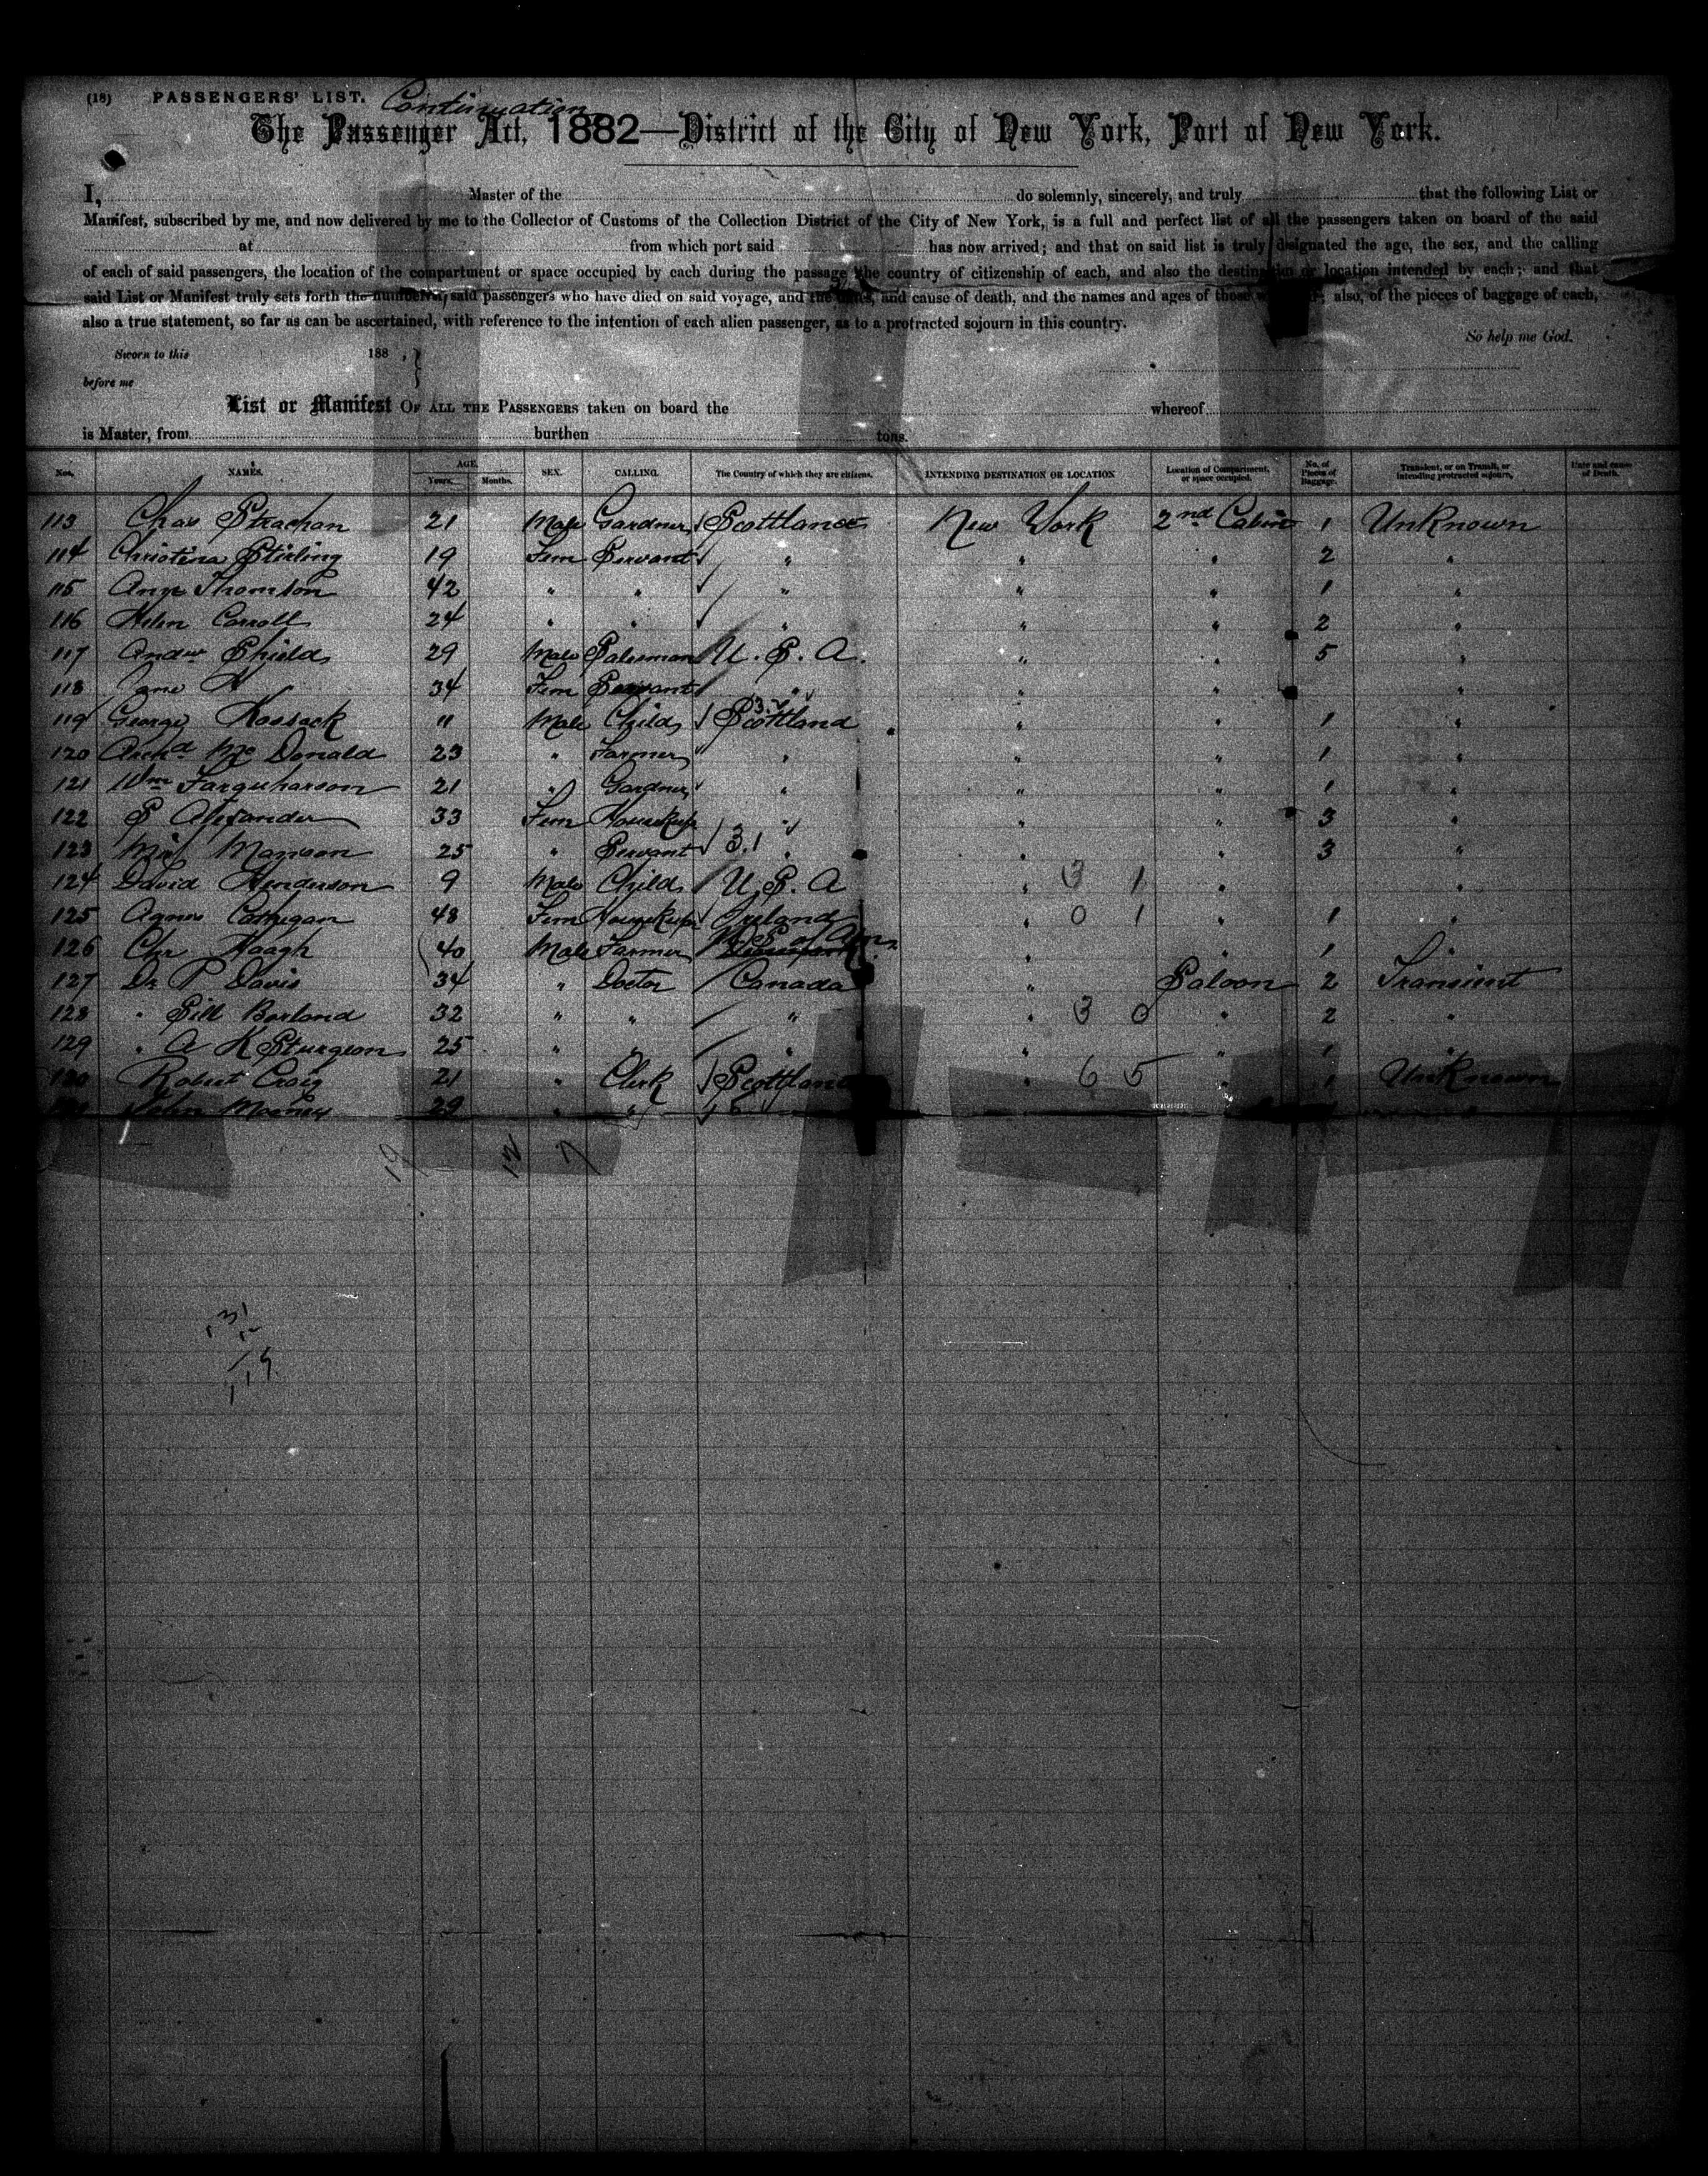 (18) PASSENGERS' LIST. Continuation
The Passenger Act, 1882—District of the City of New York, Port of New York.
I, Master of the do solemnly, sincerely, and truly that the following List or
Manifest, subscribed by me, and now delivered by me to the Collector of Customs of the Collection District of the City of New York, is a full and perfect list of all the passengers taken on board of the said
at from which port said has now arrived; and that on said list is truly designated the age, the sex, and the calling
of each of said passengers, the location of the compartment or space occupied by each during the passage the country of citizenship of each, and also the destination or location intended by each; and that
said List or Manifest truly sets forth the number of said passengers who have died on said voyage, and the dates, and cause of death, and the names and ages of those also, of the pieces of baggage of each,
also a true statement, so far as can be ascertained, with reference to the intention of each alien passenger, as to a protracted sojourn in this country.
So help me God.
Sworn to this 188 ,
before me
List or Manifest OF ALL THE PASSENGERS taken on board the whereof
is Master, from burthen tons.
Nos. NAMES. AGE. Years. Months. SEX. CALLING. The Country of which they are citizens. INTENDING DESTINATION OR LOCATION Location of Compartment, or space occupied. No. of Pieces of Baggage. Transient, or on Transit, or intending protracted sojourn, Date and cause of Death.
113 Chas Strachan 21 Male Gardner Scottland New York 2nd Cabin 1 Unknown
114 Christina Stirling 19 Fem Servant " " " 2 "
115 Ann Thomson 42 " " " " " 1 "
116 Helen Carroll 24 " " " " " 2 "
117 Andw Shields 29 Male Salesman U. S. A. " " 5 "
118 Jane 34 Fem Servant " " " "
119 George Hossack 11 Male Child Scottland " " 1 "
120 Archd Mc Donald 23 " Farmer " " " 1 "
121 Wm Farquharson 21 " Gardner " " " 1 "
122 S Alexander 33 Fem " " " 3 "
123 Miss Manson 25 " Servant 3.1 " " " 3 "
124 David Henderson 9 Male Child U. S. A " 3 1 " "
125 Agnes 48 Fem Ireland " 0 1 " 1 "
126 Chr Haagh 40 Male Farmer " " 1 "
127 Dr P Davis 34 " Doctor Canada " Saloon 2 Transient
128 " Gill Borland 32 " " " " 3 0 " 2 "
129 " A K Sturgeon 25 " " " " " 1 "
130 Robert Craig 21 " Clerk Scottland " 6 5 " 1 Unknown
John Mooney 29 " "